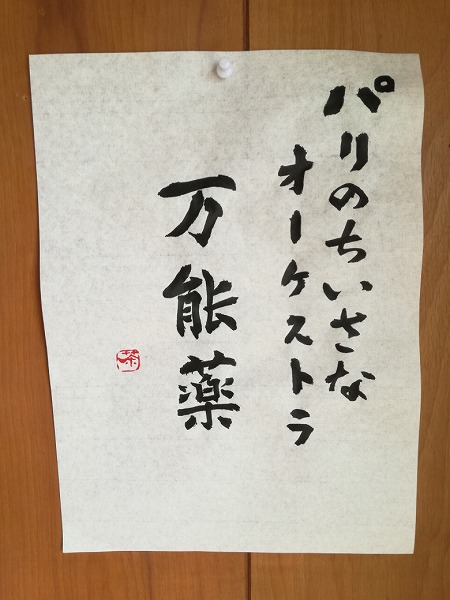 パリのちいさな
オーケストラ
万能薬
茶